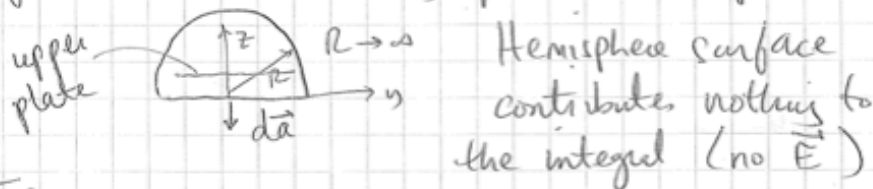 upper
plate
z
R → ∞
R
y
da
Hemisphere surface
contributes nothing to
the integral (no E)